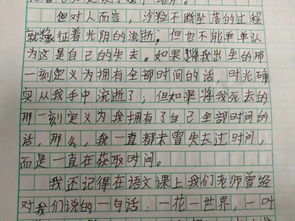 但对人而言，沙粒不断坠落的过程
就象征着光阴的流逝，但也不能单单认
为这是自己的失去。如果将我出生的那
一刻定义为拥有全部时间的话，时光确
实从我手中流逝了，但如果将我死去的
那一刻定义为我拥有了自己全部时间的
话，那么，我一直都未曾失去过时间，
而是一直在获取时间。
我还记得在语文课上我们老师曾经
对我们说的一句话：一花一世界，一叶